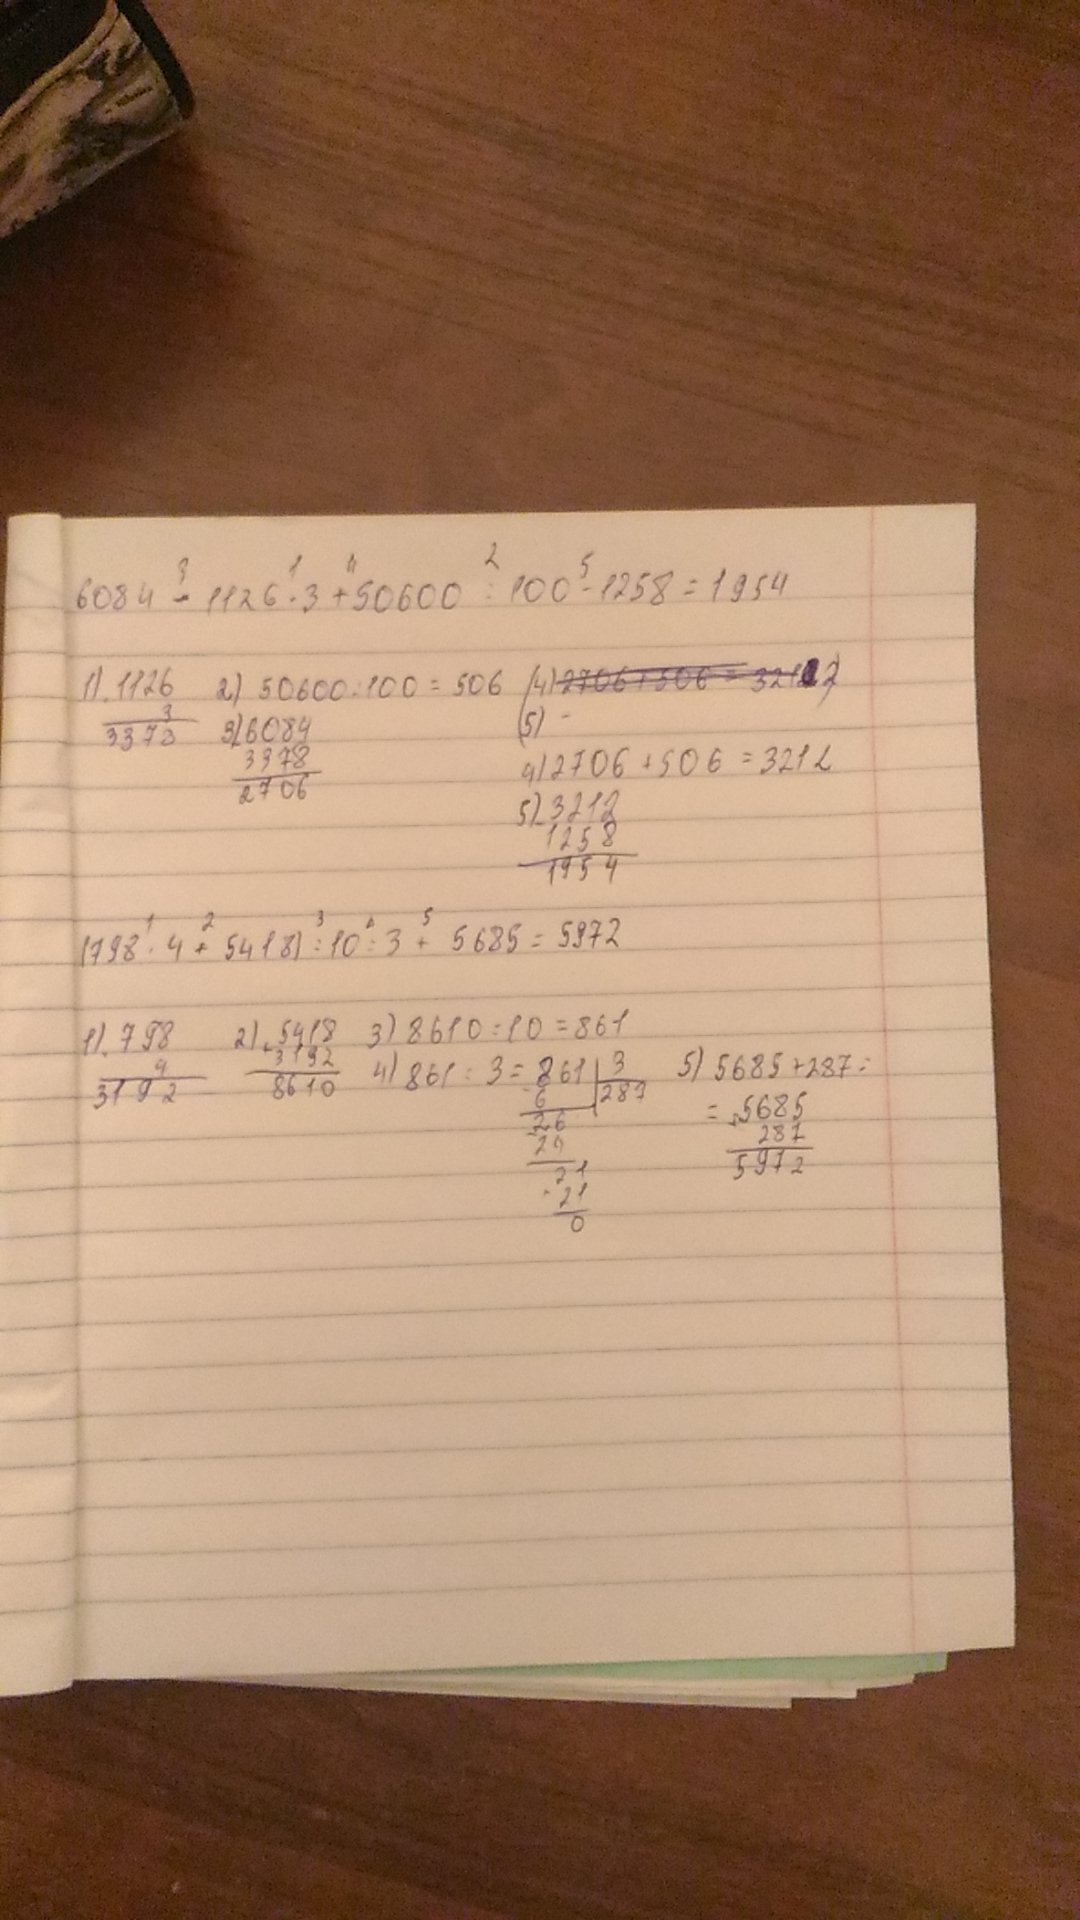 6084 - 1126 · 3 + 50600 : 100 - 1258 = 1954
3 1 4 2 5
1) 1126 2) 50600 : 100 = 506 (4) 2706 + 506 = 3212)
3 3) 6084 (5) -
3378 3378 4) 2706 + 506 = 3212
2706 5) 3212
1258
1954
1 2 3 4 5
(798 · 4 + 5418) : 10 : 3 + 5685 = 5972
1) 798 2) + 5418 3) 8610 : 10 = 861
4 3192 4) 861 : 3 = 861 3 5) 5685 + 287 =
3192 8610 6 287 = + 5685
26 287
24 5972
21
- 21
0